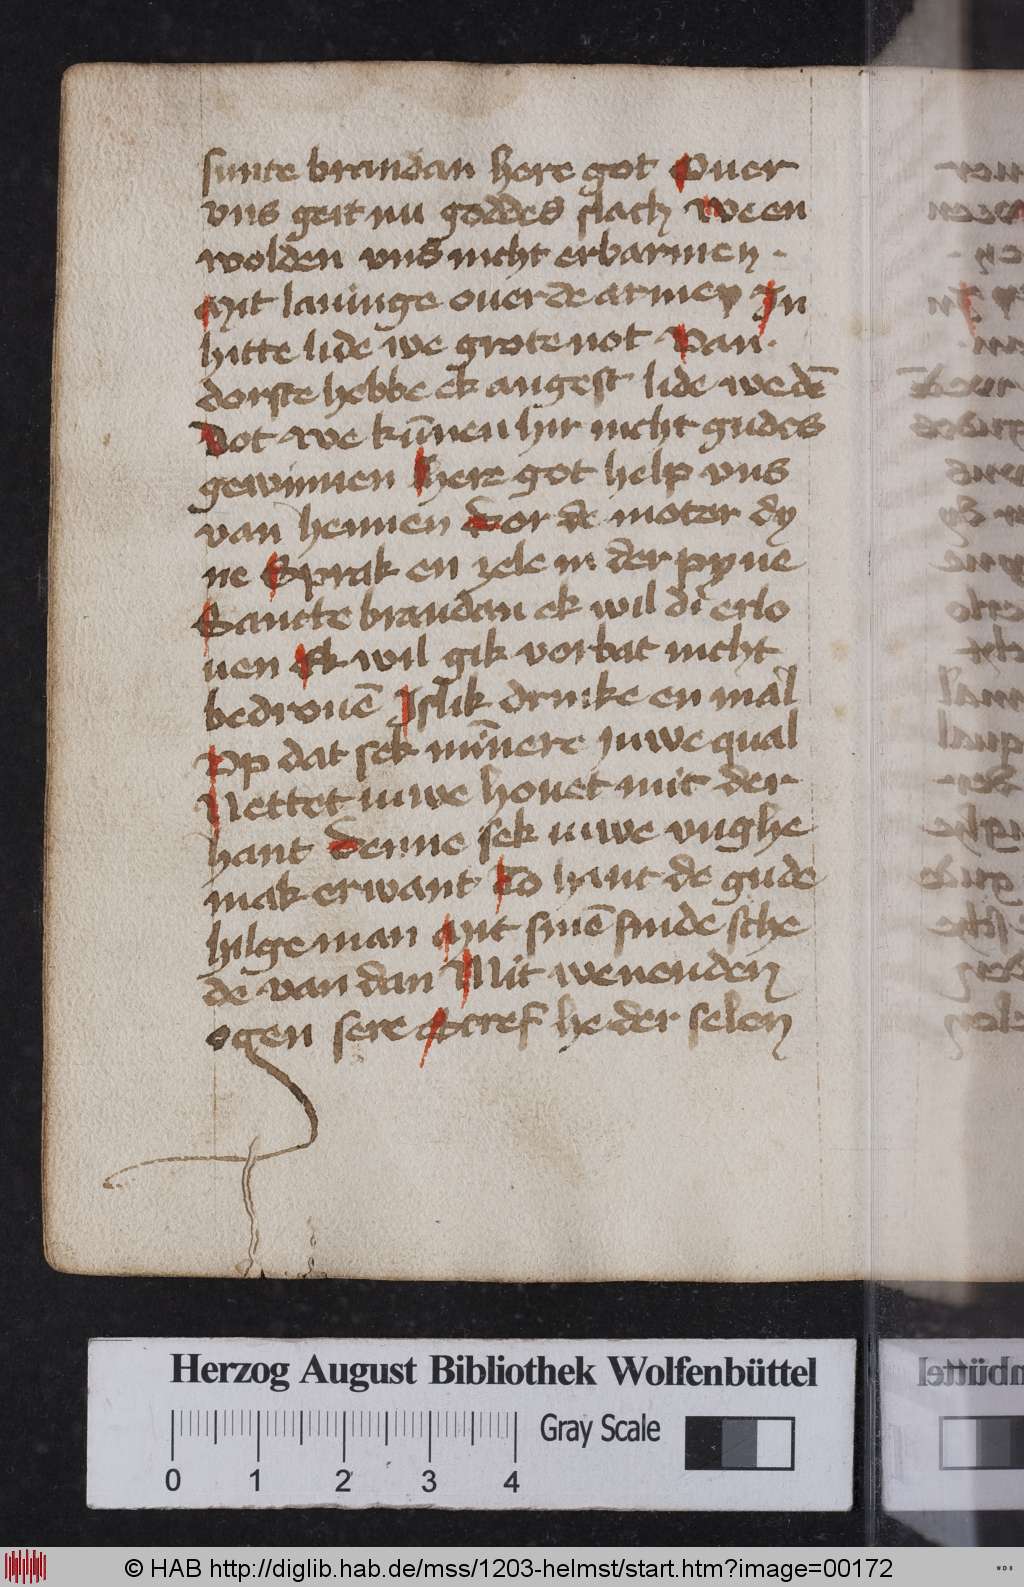 sunte brandan here got Ouer
vns geit nu goddes slach We en
wolden vns nicht erbarmen .
Mit lauinge ouer de armen In
hitte lide we grote not Van
dorste hebbe ek angest lide we dē
Dot we kūnen hir nicht gudes
gewinnen here got help vns
van hennen Dor de moter dy
ne Sprak en zele in der pyne
Sancte brandan ek wil di erlo
uen Ek wil gik vorbat nicht
bedrouē Islik drinke en mal
Vp dat sek minnere juwe qual
Nettet iuwe houet mit der
hant Denne sek iuwe vnghe
mak erwant To hant de gude
hilge man Mit sinē sinde sche
de van dan Mit wenenden
ogen sere Scref he der selen
Herzog August Bibliothek Wolfenbüttel
0 1 2 3 4 Gray Scale
© HAB http://diglib.hab.de/mss/1203-helmst/start.htm?image=00172